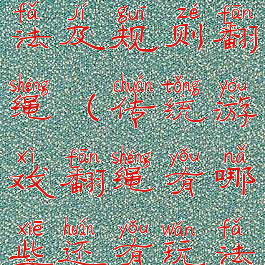 fǎ jí guī zé fān
法及规则翻
shéng chuán tǒng yóu
绳(传统游
xì fān shéng yǒu nǎ
戏翻绳有哪
xiē huán yǒu wán fǎ
些还有玩法